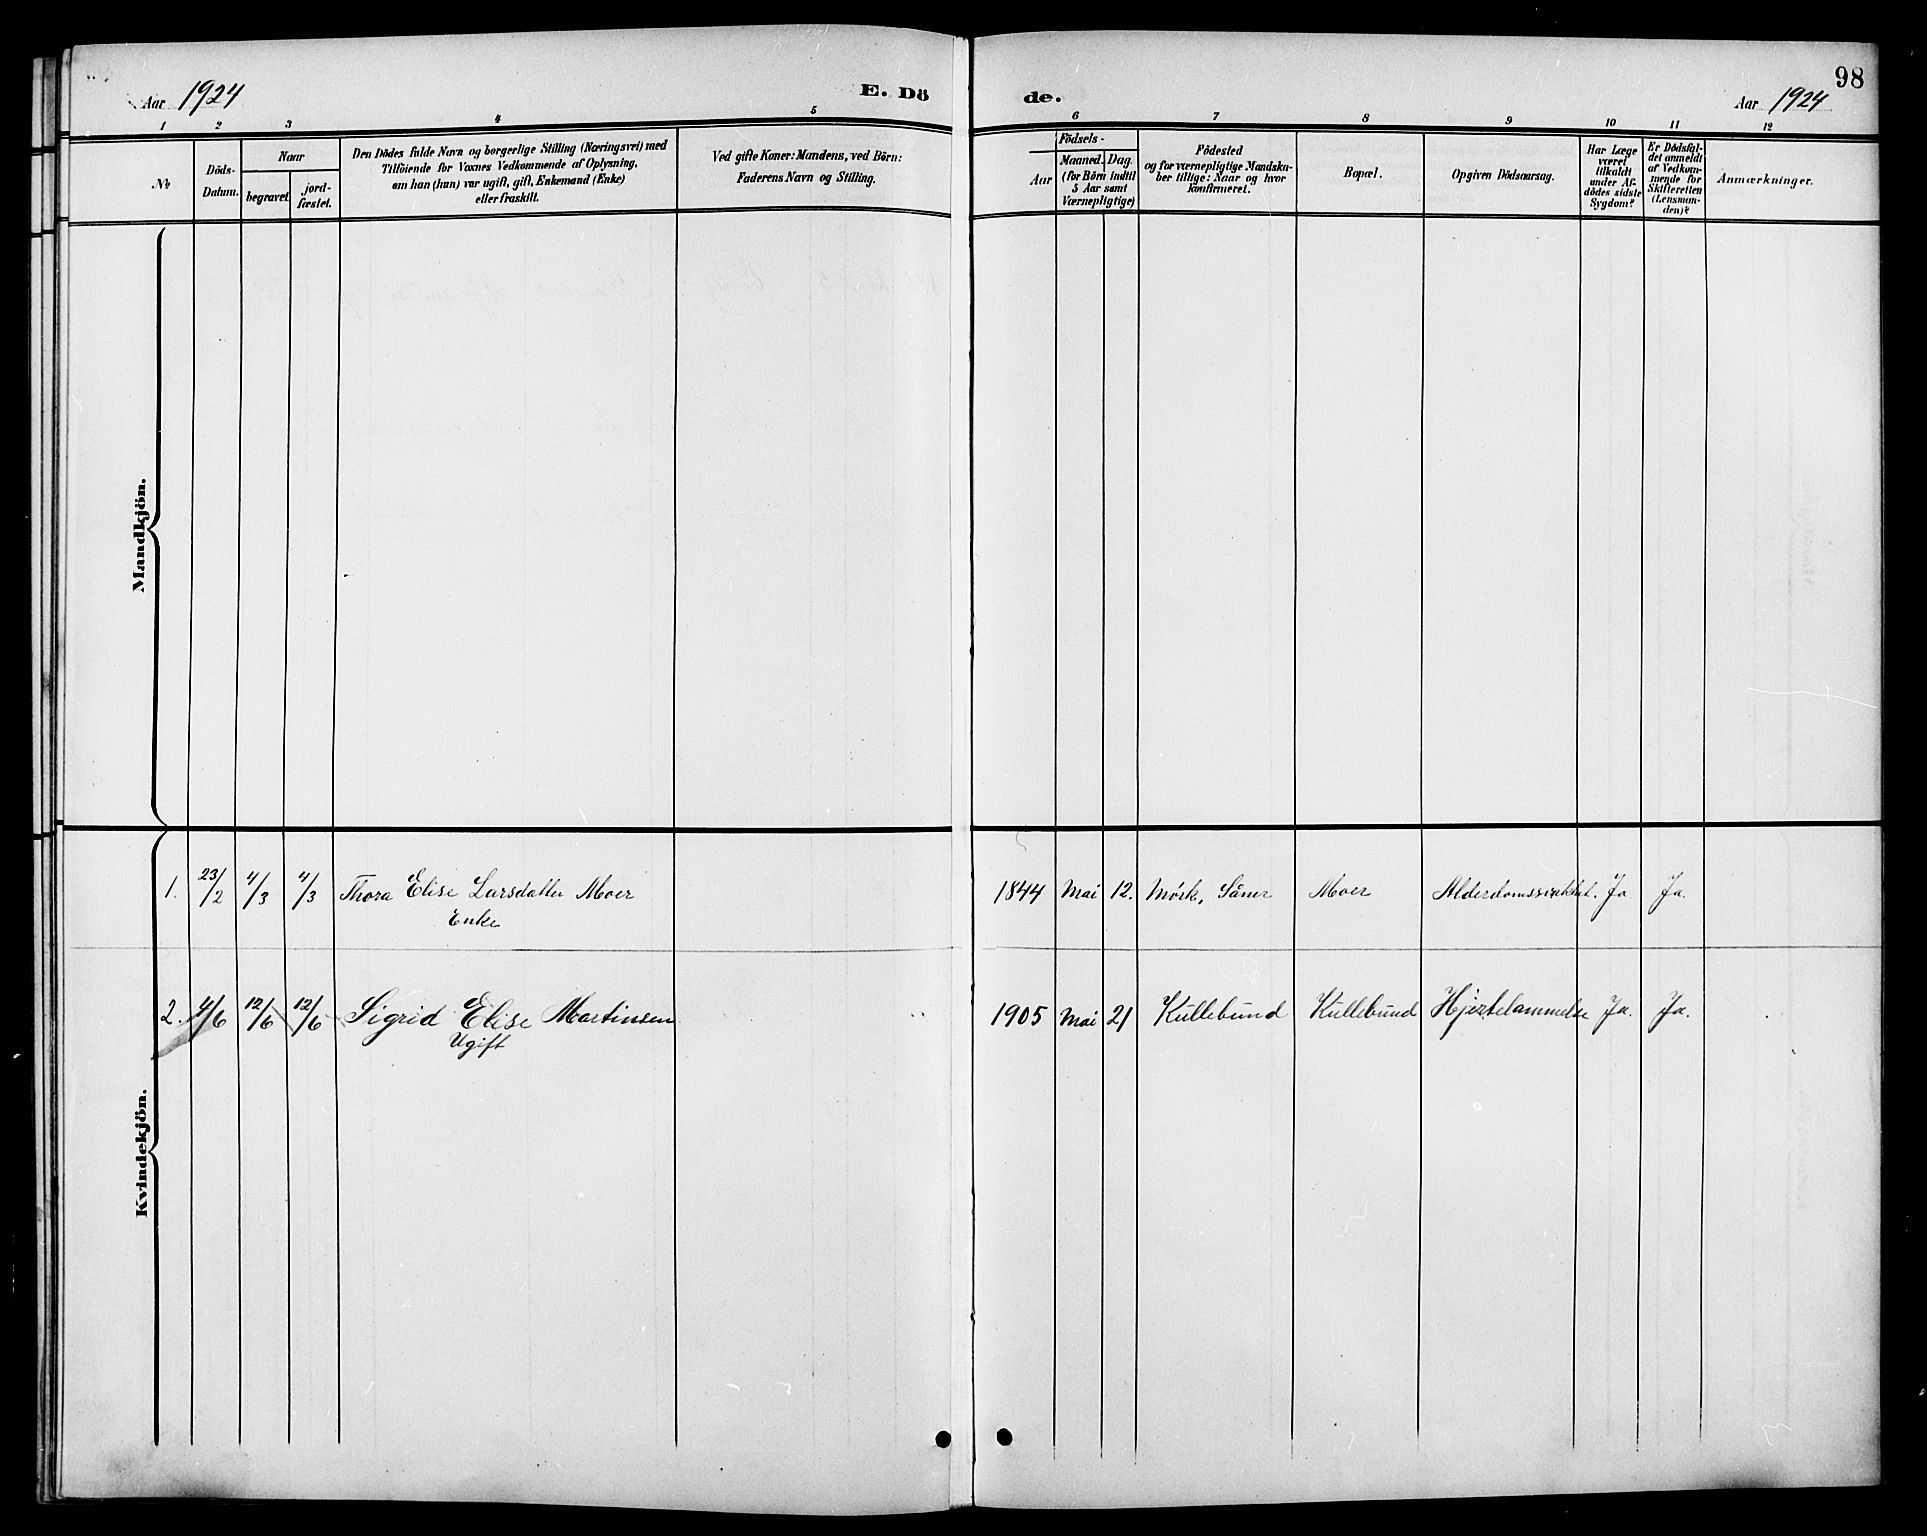 Aar 1924
E. Dö
de.
98
Aar 1924
1 2 3 4 5 6 7 8 9 10 11 12
No
Döds-
Datum.
Naar
begravet
jord-
fæstet.
Den Dödes fulde Navn og borgerlige Stilling (Næringsvei) med
Tilföiende for Voxnes Vedkommende af Oplysning,
om han (hun) var ugift, gift, Enkemand (Enke)
eller fraskilt.
Ved gifte Koner: Mandens, ved Börn:
Faderens Navn og Stilling.
Födsels-
Aar
Maaned. Dag.
(for Börn indtil
5 Aar samt
Værnepligtige)
Födested
og for værnepligtige Mandska-
ber tillige: Naar og hvor
konfirmeret.
Bopæl.
Opgiven Dödsaarsag.
Har Læge
været
tilkaldt
under Af-
dödes sidste
Sygdom?
Er Dödsfal-
det anmeldt
af Vedkom-
mende for
Skifteretten
(Lensman-
den)?
Anmærkninger.
Mandkjön.
Kvindekjön.
1. 23/2 4/3 4/3 Thora Elise Larsdatter Moer 1844 Mai 12. Mörk, Såner Moer Alderdomssvakhet. Ja Ja.
Enke
2. 4/6 12/6 12/6 Sigrid Elise Martinsen 1905 Mai 21 Kullebund Kullebund Hjertelammelse Ja. Ja.
Ugift